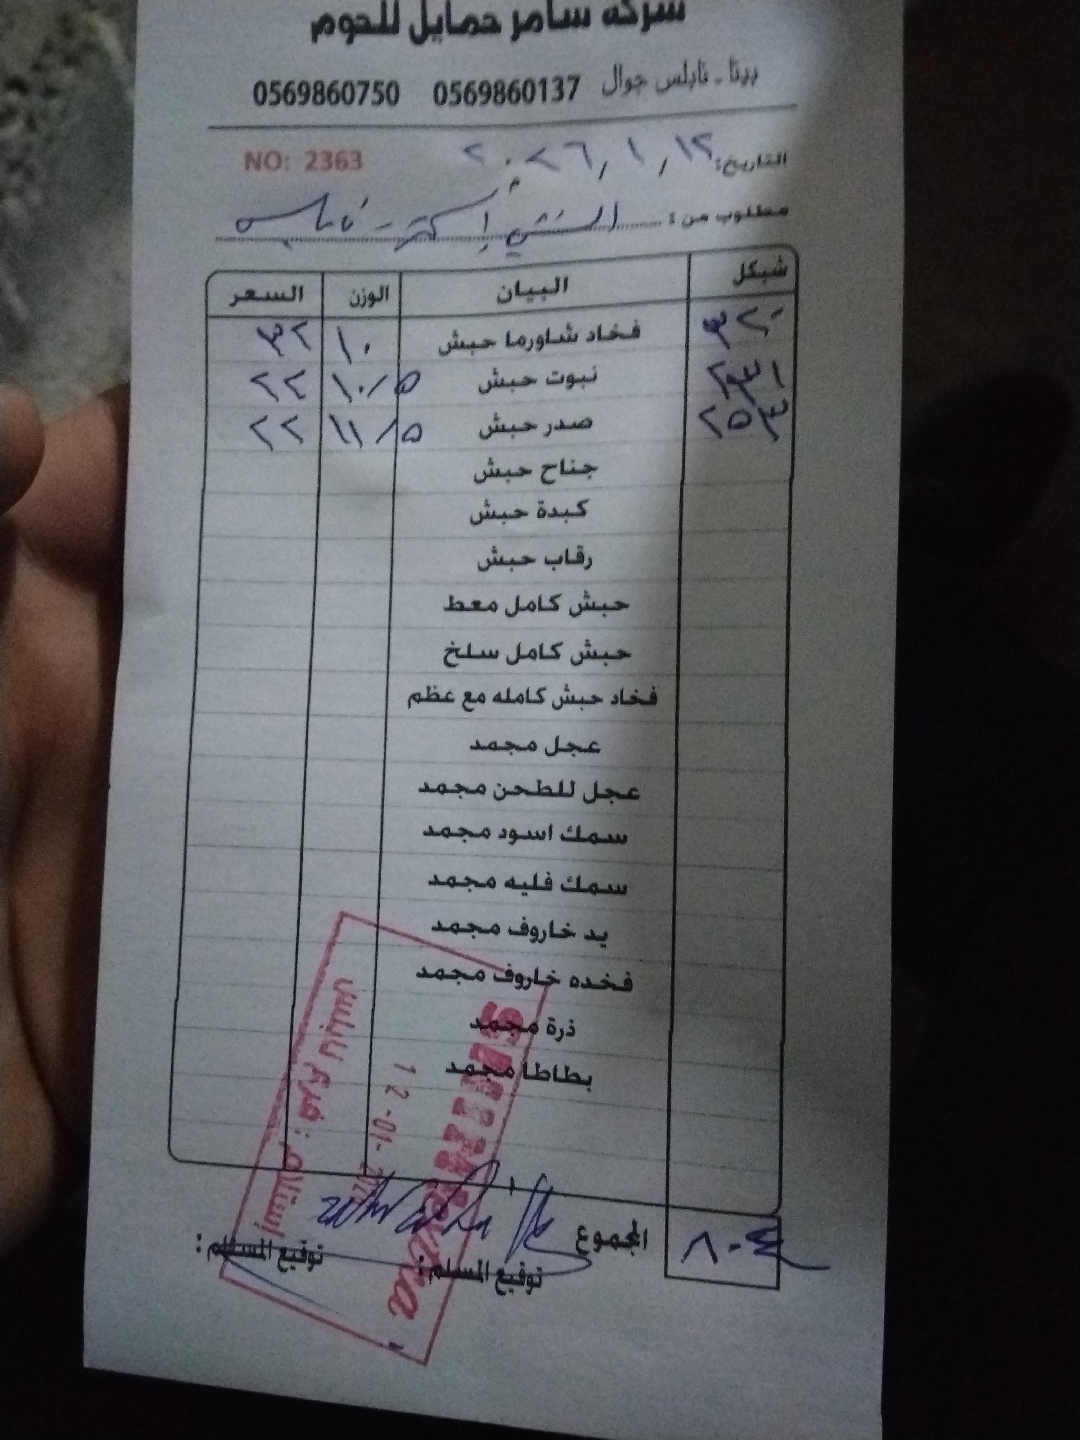 شركة سامر حمايل للحوم
بيتا - نابلس جوال 0569860137 0569860750
NO: 2363
التاريخ: ١٢ / ١ / ٢٠٢٦
مطلوب من : نابلس
شيكل البيان الوزن السعر
٣٢٠ فخاد شاورما حبش ١٠ ٣٢
٢٣١ نبوت حبش ١٠/٥ ٢٢
٢٥٣ صدر حبش ١١/٥ ٢٢
جناح حبش
كبدة حبش
رقاب حبش
حبش كامل معط
حبش كامل سلخ
فخاد حبش كامله مع عظم
عجل مجمد
عجل للطحن مجمد
سمك اسود مجمد
سمك فليه مجمد
يد خاروف مجمد
فخده خاروف مجمد
ذرة مجمد
بطاطا مجمد
المجموع ٨٠٤
توقيع المسلم : توقيع المستلم :
12-01-202
إستلام : فرع نابلس